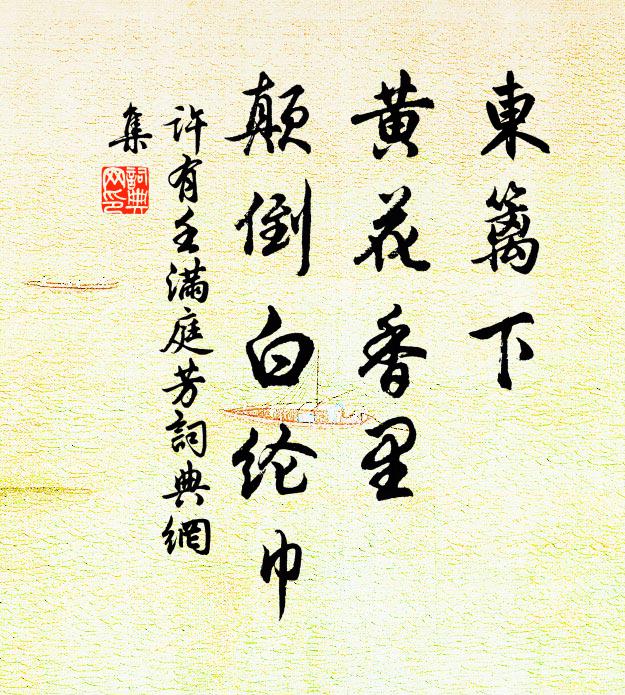 東籬下
黄花香里
颠倒白纶巾
許有壬滿庭芳詞典網
集
詞典
网印